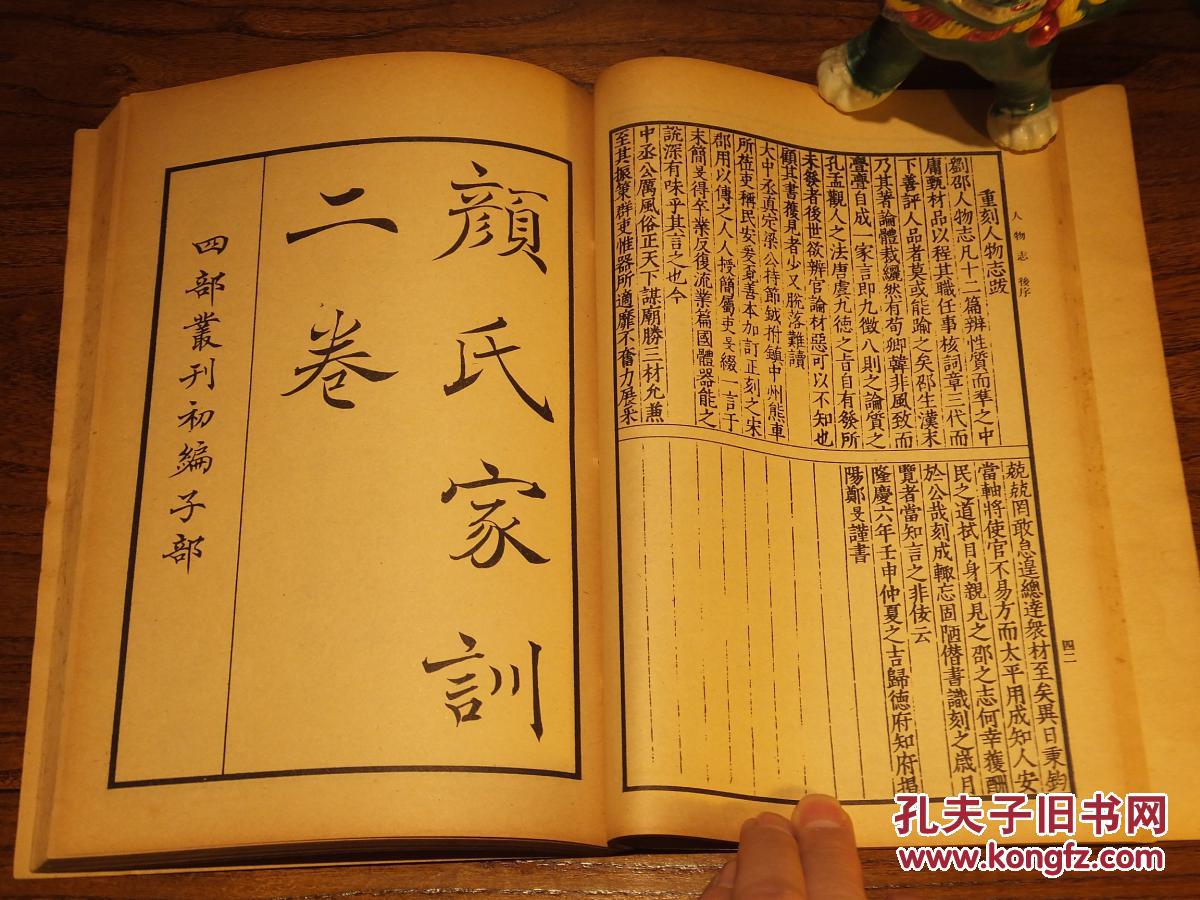 人物志 後序
四二
重刻人物志跋
劉邵人物志凡十二篇辨性質而準之中
庸甄材品以程其職任事核詞章三代而
下善評人品者莫或能踰之矣邵生漢末
乃其著論體裁纚然有荀卿韓非風致而
亹亹自成一家言即九徵八則之論質之
孔孟觀人之法唐虞九德之旨自有發所
未發者後世欲辨官論材惡可以不知也
顧其書獲見者少又脫落難讀
大中丞真定梁公持節鉞拊鎮中州熊車
所莅吏稱民安爰覔善本加訂正刻之宋
郡用以傳之人人授簡屬吏旻綴一言于
末簡旻得卒業反復流業篇國體器能之
說深有味乎其言之也今
中丞公厲風俗正天下謀廟勝三材允兼
至其振策群吏惟器所適靡不奮力展采
兢兢罔敢怠遑總達衆材至矣異日秉鈞
當軸將使官不易方而太平用成知人安
民之道拭目身親見之邵之志何幸獲酬
於公哉刻成輙忘固陋僭書識刻之歲月
覽者當知言之非佞云
隆慶六年壬申仲夏之吉歸德府知府揭
陽鄭旻謹書
顏氏家訓
二卷
四部叢刊初編子部
孔夫子旧书网
www.kongfz.com